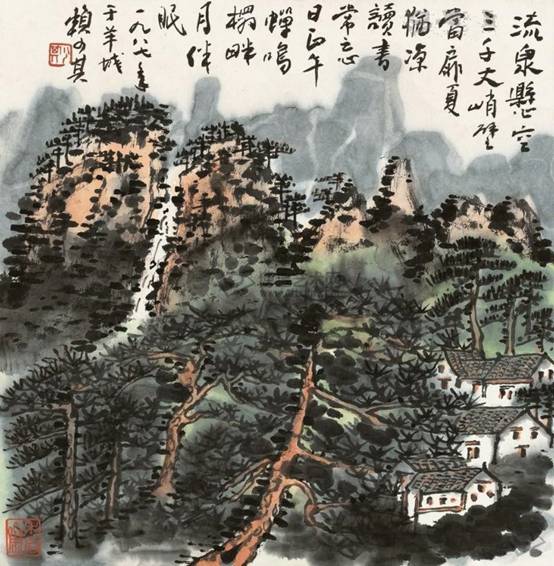 流泉懸空
三千丈峭壁
當廊夏
猶涼
讀書
常忘
日正午
蟬鳴
榻畔
月伴
眠
一九八七年
于羊城
賴少其